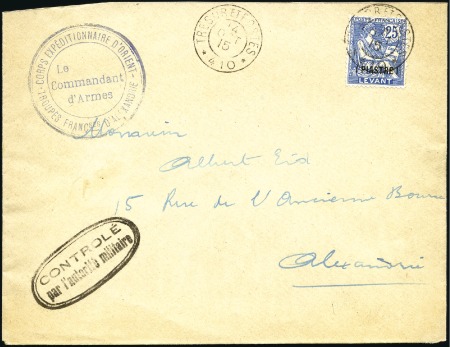 CORPS EXPÉDITIONNAIRE D'ORIENT
Le
Commandant
d'Armes
TROUPES FRANÇSES D'ALEXANDRIE
TRESOR ET POSTES
4
15
*410*
25
1 PIASTRE
LEVANT
Monsieur
Albert Eid
15 Rue de l'Ancienne Bourse
Alexandrie
CONTROLÉ
par l'autorité militaire